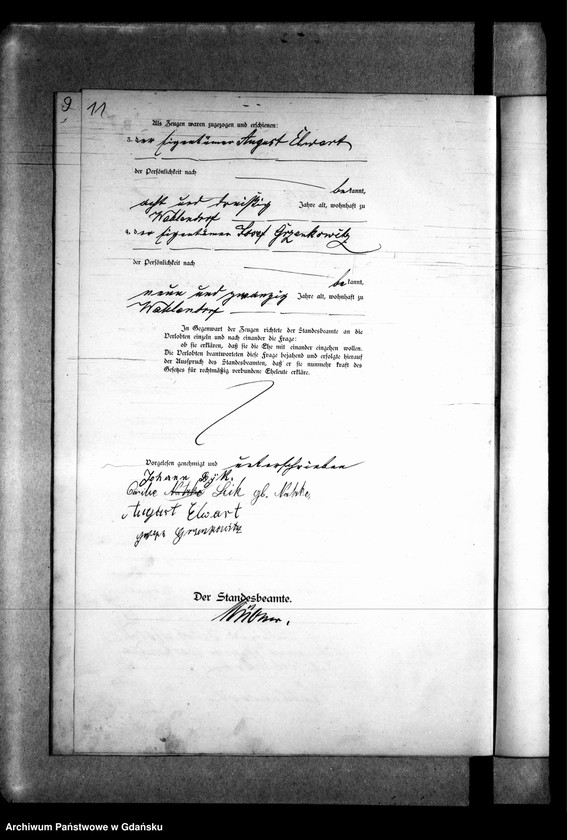 9
11
Als Zeugen waren zugezogen und erschienen:
3. der Eigentümer August Elwart
der Persönlichkeit nach
bekannt,
acht und dreißig Jahre alt, wohnhaft zu
Wahlendorf
4. der Eigentümer Josef Grzenkowitz
der Persönlichkeit nach
bekannt,
neun und zwanzig Jahre alt, wohnhaft zu
Wahlendorf
In Gegenwart der Zeugen richtete der Standesbeamte an die
Verlobten einzeln und nach einander die Frage:
ob sie erklären, daß sie die Ehe mit einander eingehen wollen.
Die Verlobten beantworteten diese Frage bejahend und erfolgte hierauf
der Ausspruch des Standesbeamten, daß er sie nunmehr kraft des
Gesetzes für rechtmäßig verbundene Eheleute erkläre.
Vorgelesen genehmigt und unterschrieben
Johann
gb.
August Elwart
Der Standesbeamte.